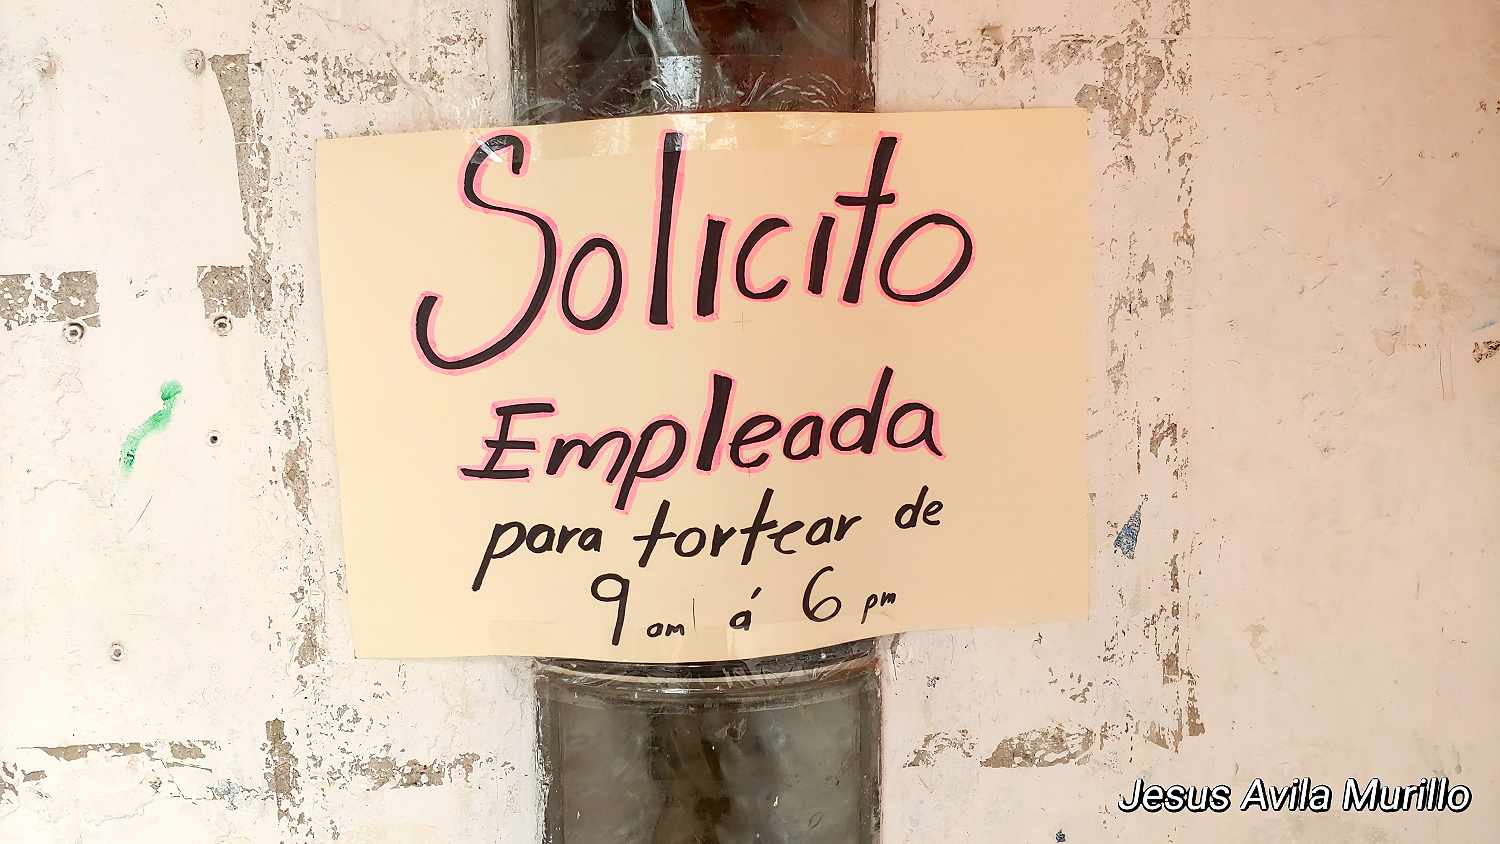 Solicito
Empleada
para tortear de
9 am á 6 pm
Jesus Avila Murillo